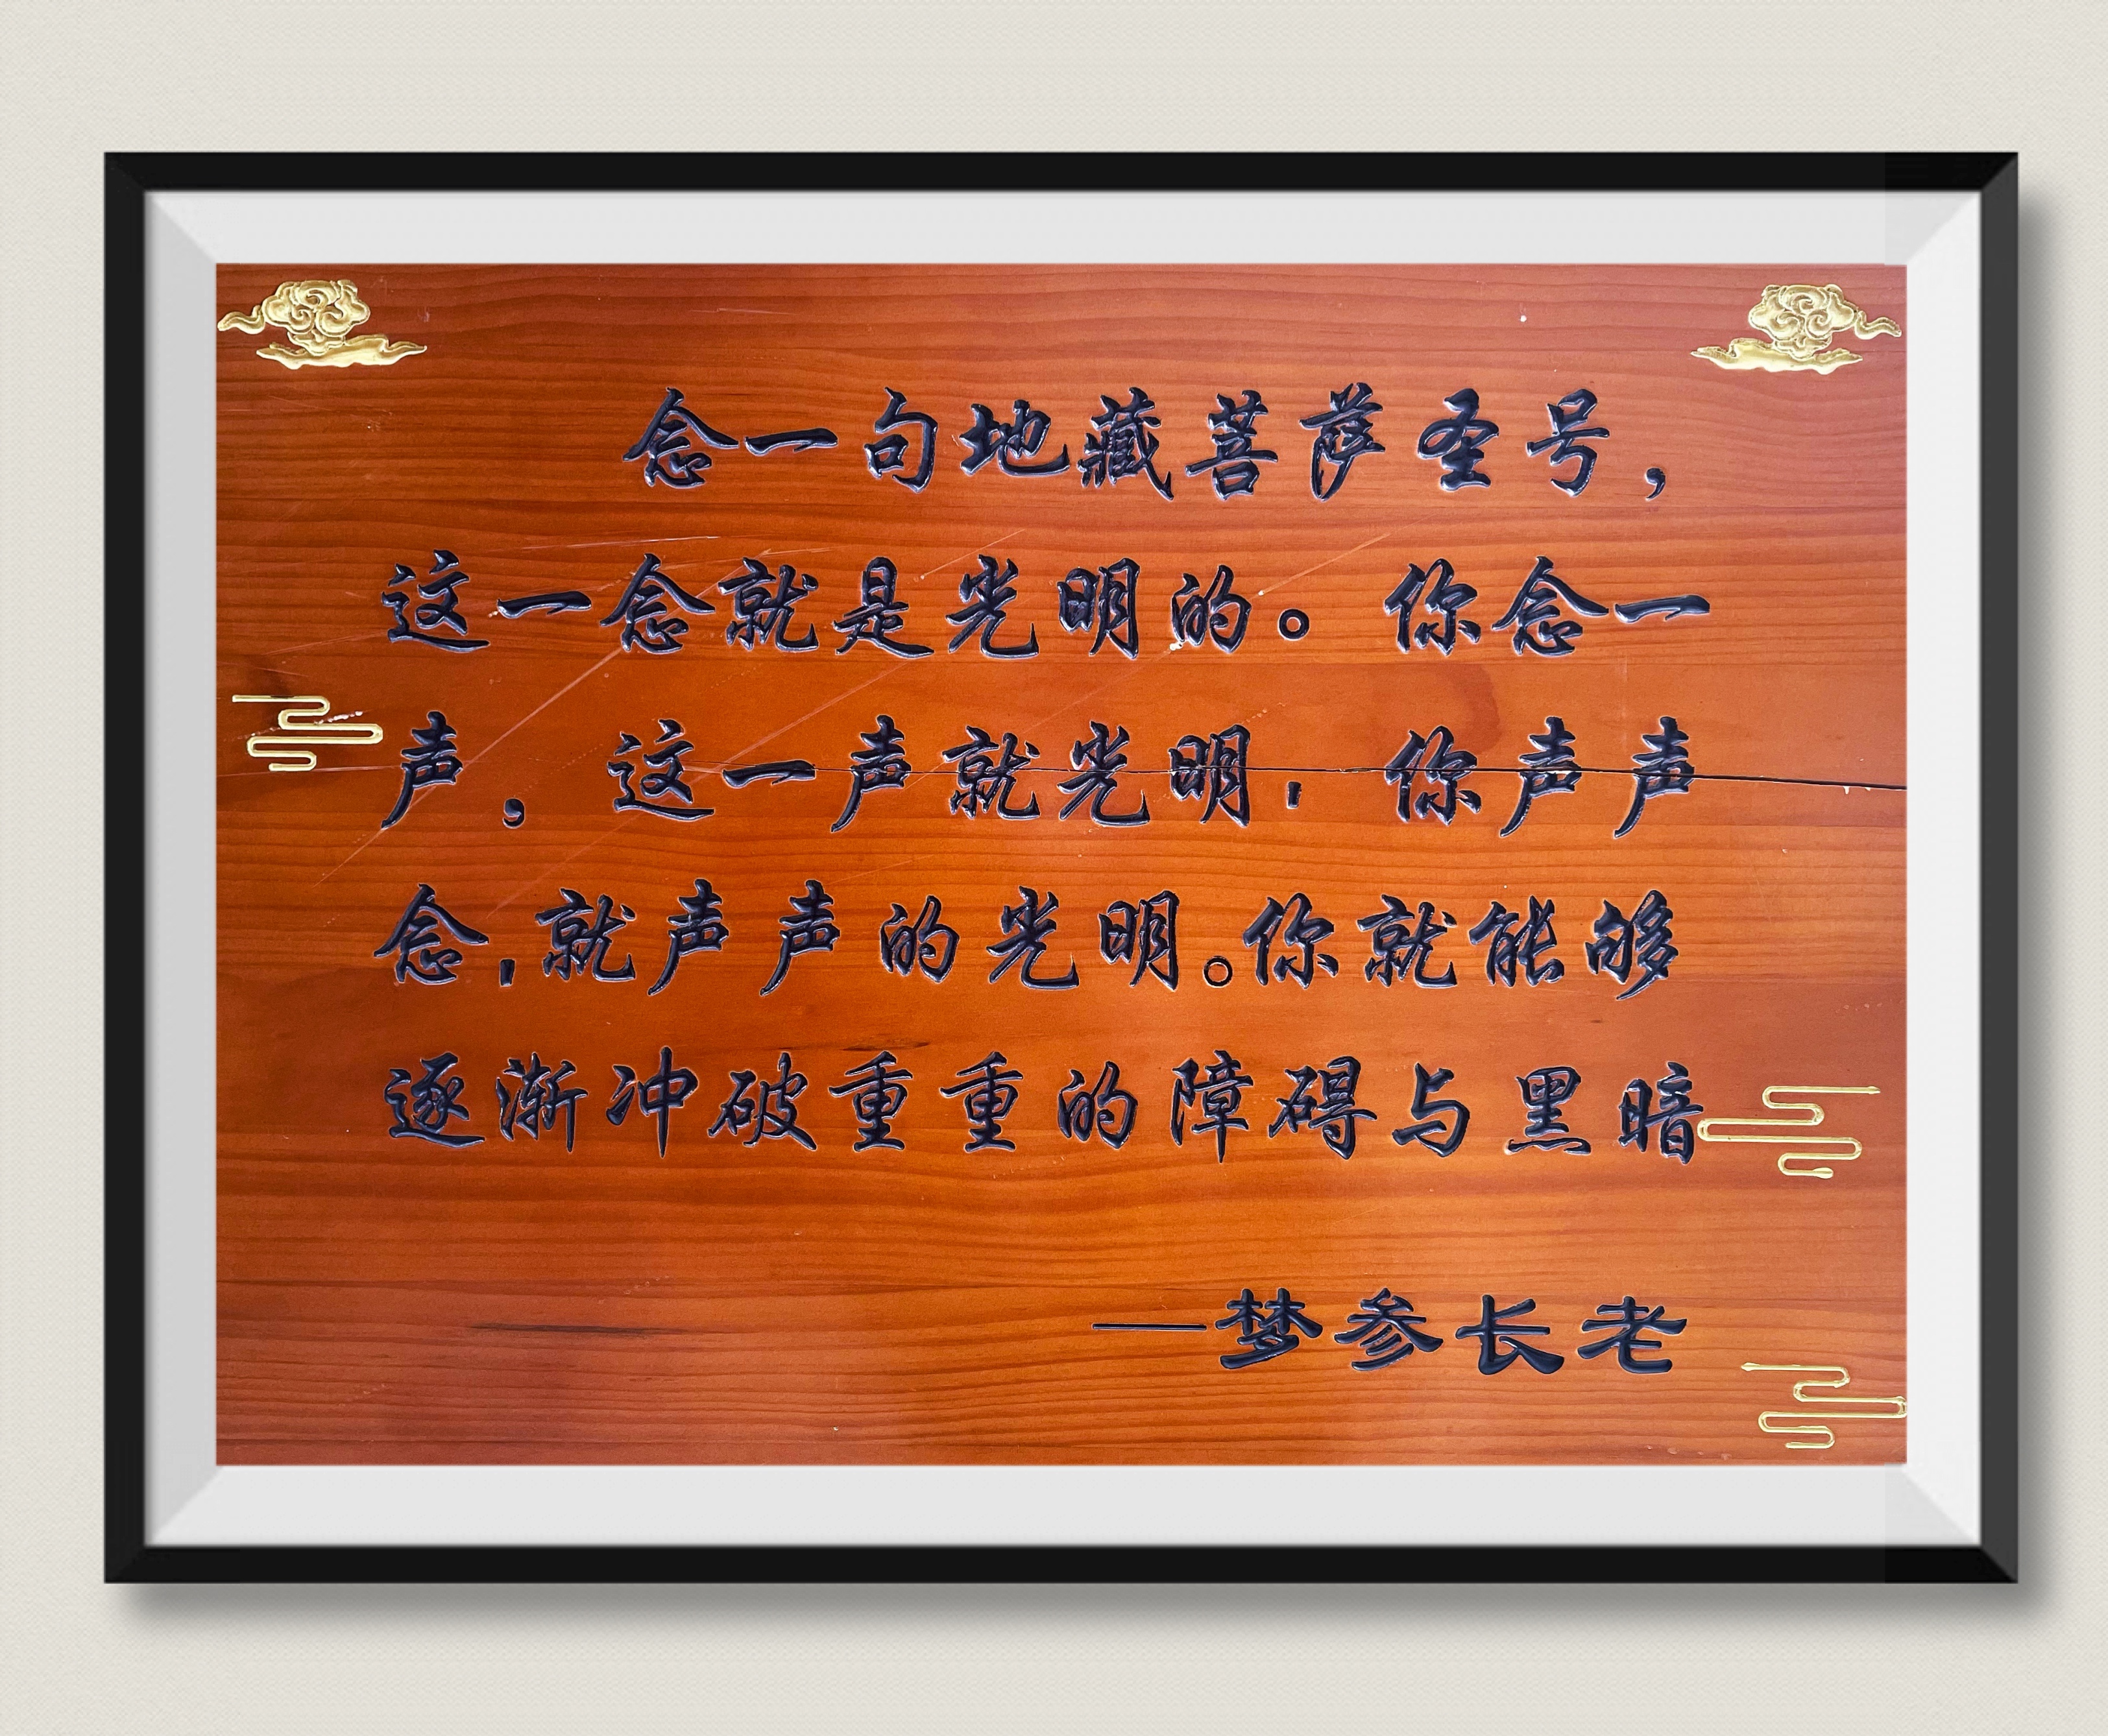 念一句地藏菩萨圣号，
这一念就是光明的。你念一
声，这一声就光明，你声声
念，就声声的光明。你就能够
逐渐冲破重重的障碍与黑暗
—梦参长老